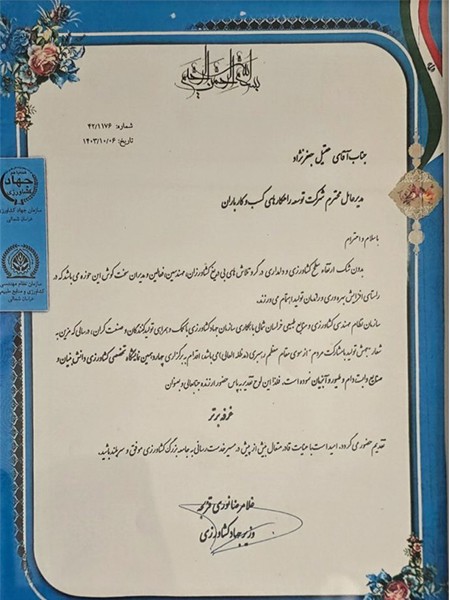 بسم الله الرحمن الرحیم
شماره: ۴۲/۱۱۷۶
تاریخ: ۱۴۰۳/۱۰/۰۶
جناب آقای عقیل جعفرنژاد
مدیرعامل محترم شرکت توسعه راهکارهای کسب و کار باران
با سلام و احترام
بدون شک ارتقاء سطح کشاورزی و دامداری در گرو تلاش های بی دریغ کشاورزان، مهندسین، فعالین و مدیران سخت کوش این حوزه می باشد که در
راستای افزایش بهره وری و راندمان تولید اهتمام می ورزند.
سازمان نظام مهندسی کشاورزی و منابع طبیعی خراسان شمالی با همکاری سازمان جهاد کشاورزی با کمک و همراهی تولیدکنندگان و صنعت گران، در سالی که مزین به
شعار "جهش تولید با مشارکت مردم" از سوی مقام معظم رهبری (مد ظله العالی) می باشد، اقدام به برگزاری چهاردهمین نمایشگاه تخصصی کشاورزی دانش بنیان و
صنایع وابسته دام و طیور و آبزیان نموده است. فلذا این لوح تقدیر به پاس حضور ارزنده جنابعالی به عنوان
غرفه برتر
تقدیم حضور می گردد. امید است با عنایات قادر متعال بیش از پیش در مسیر خدمت رسانی به جامعه بزرگ کشاورزی موفق و سربلند باشید.
غلامرضا نوری قزلجه
وزیر جهاد کشاورزی
جهاد
کشاورزی
سازمان جهاد کشاورزی
خراسان شمالی
سازمان نظام مهندسی
کشاورزی و منابع طبیعی
خراسان شمالی